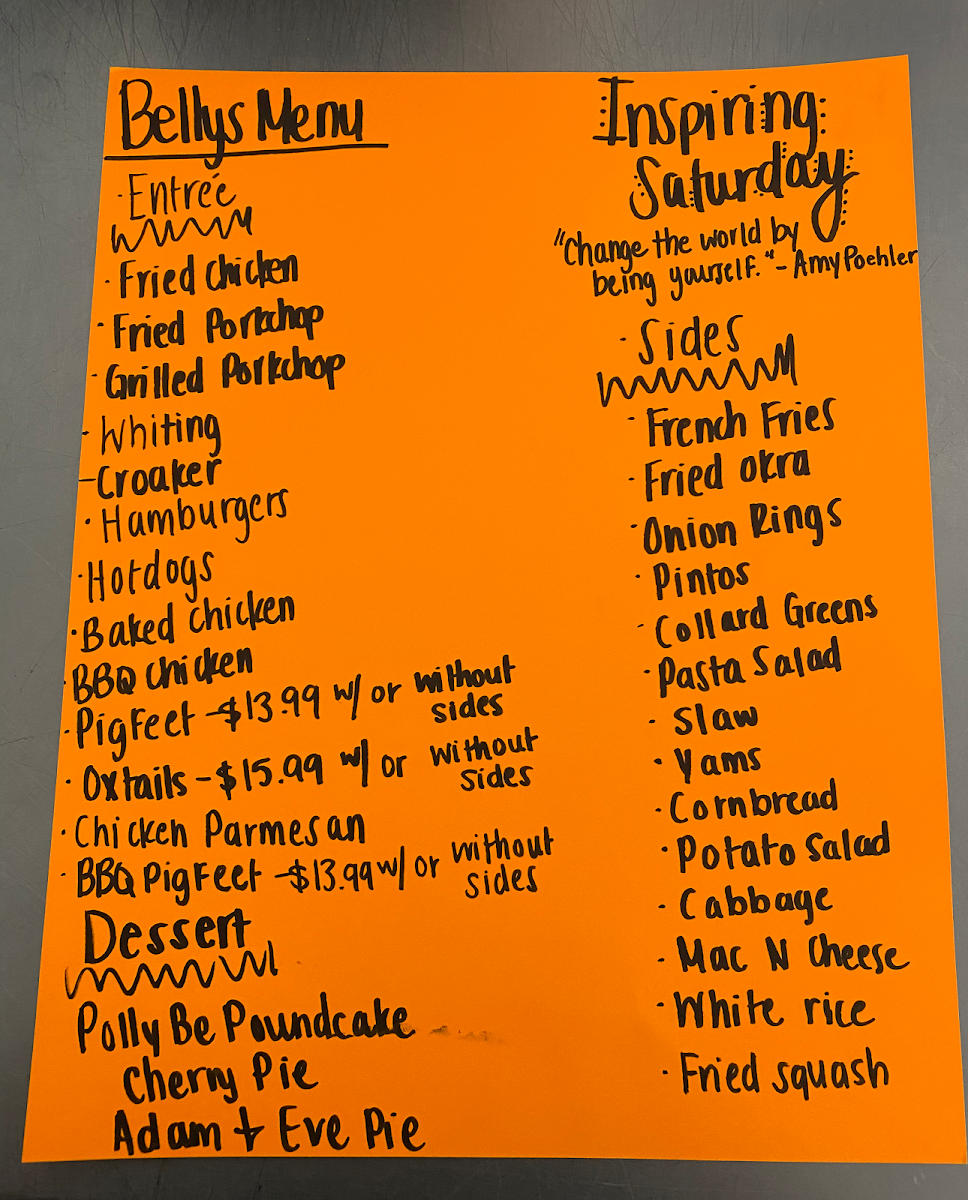 Bellys Menu
·Entreé
·Fried Chicken
·Fried Porkchop
·Grilled Porkchop
-Whiting
-Croaker
·Hamburgers
·Hotdogs
·Baked Chicken
·BBQ Chicken
·Pig Feet -$13.99 w/ or without sides
·Oxtails -$15.99 w/ or without sides
·Chicken Parmesan
·BBQ Pig Feet -$13.99 w/ or without sides
Dessert
Polly Be Poundcake
Cherry Pie
Adam + Eve Pie
Inspiring
Saturday
"Change the world by
being yourself." - Amy Poehler
·Sides
·French Fries
·Fried okra
·Onion Rings
·Pintos
·Collard Greens
·Pasta Salad
·Slaw
·Yams
·Cornbread
·Potato Salad
·Cabbage
·Mac N Cheese
·White rice
·Fried squash